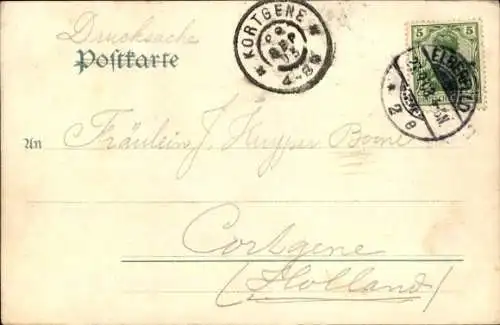 Drucksache
Postkarte
KORTGENE
4-8
5 5
ELBERFELD
* 2 e
An Fräulein J. Kuyper Borne
Cortgene
(Holland)